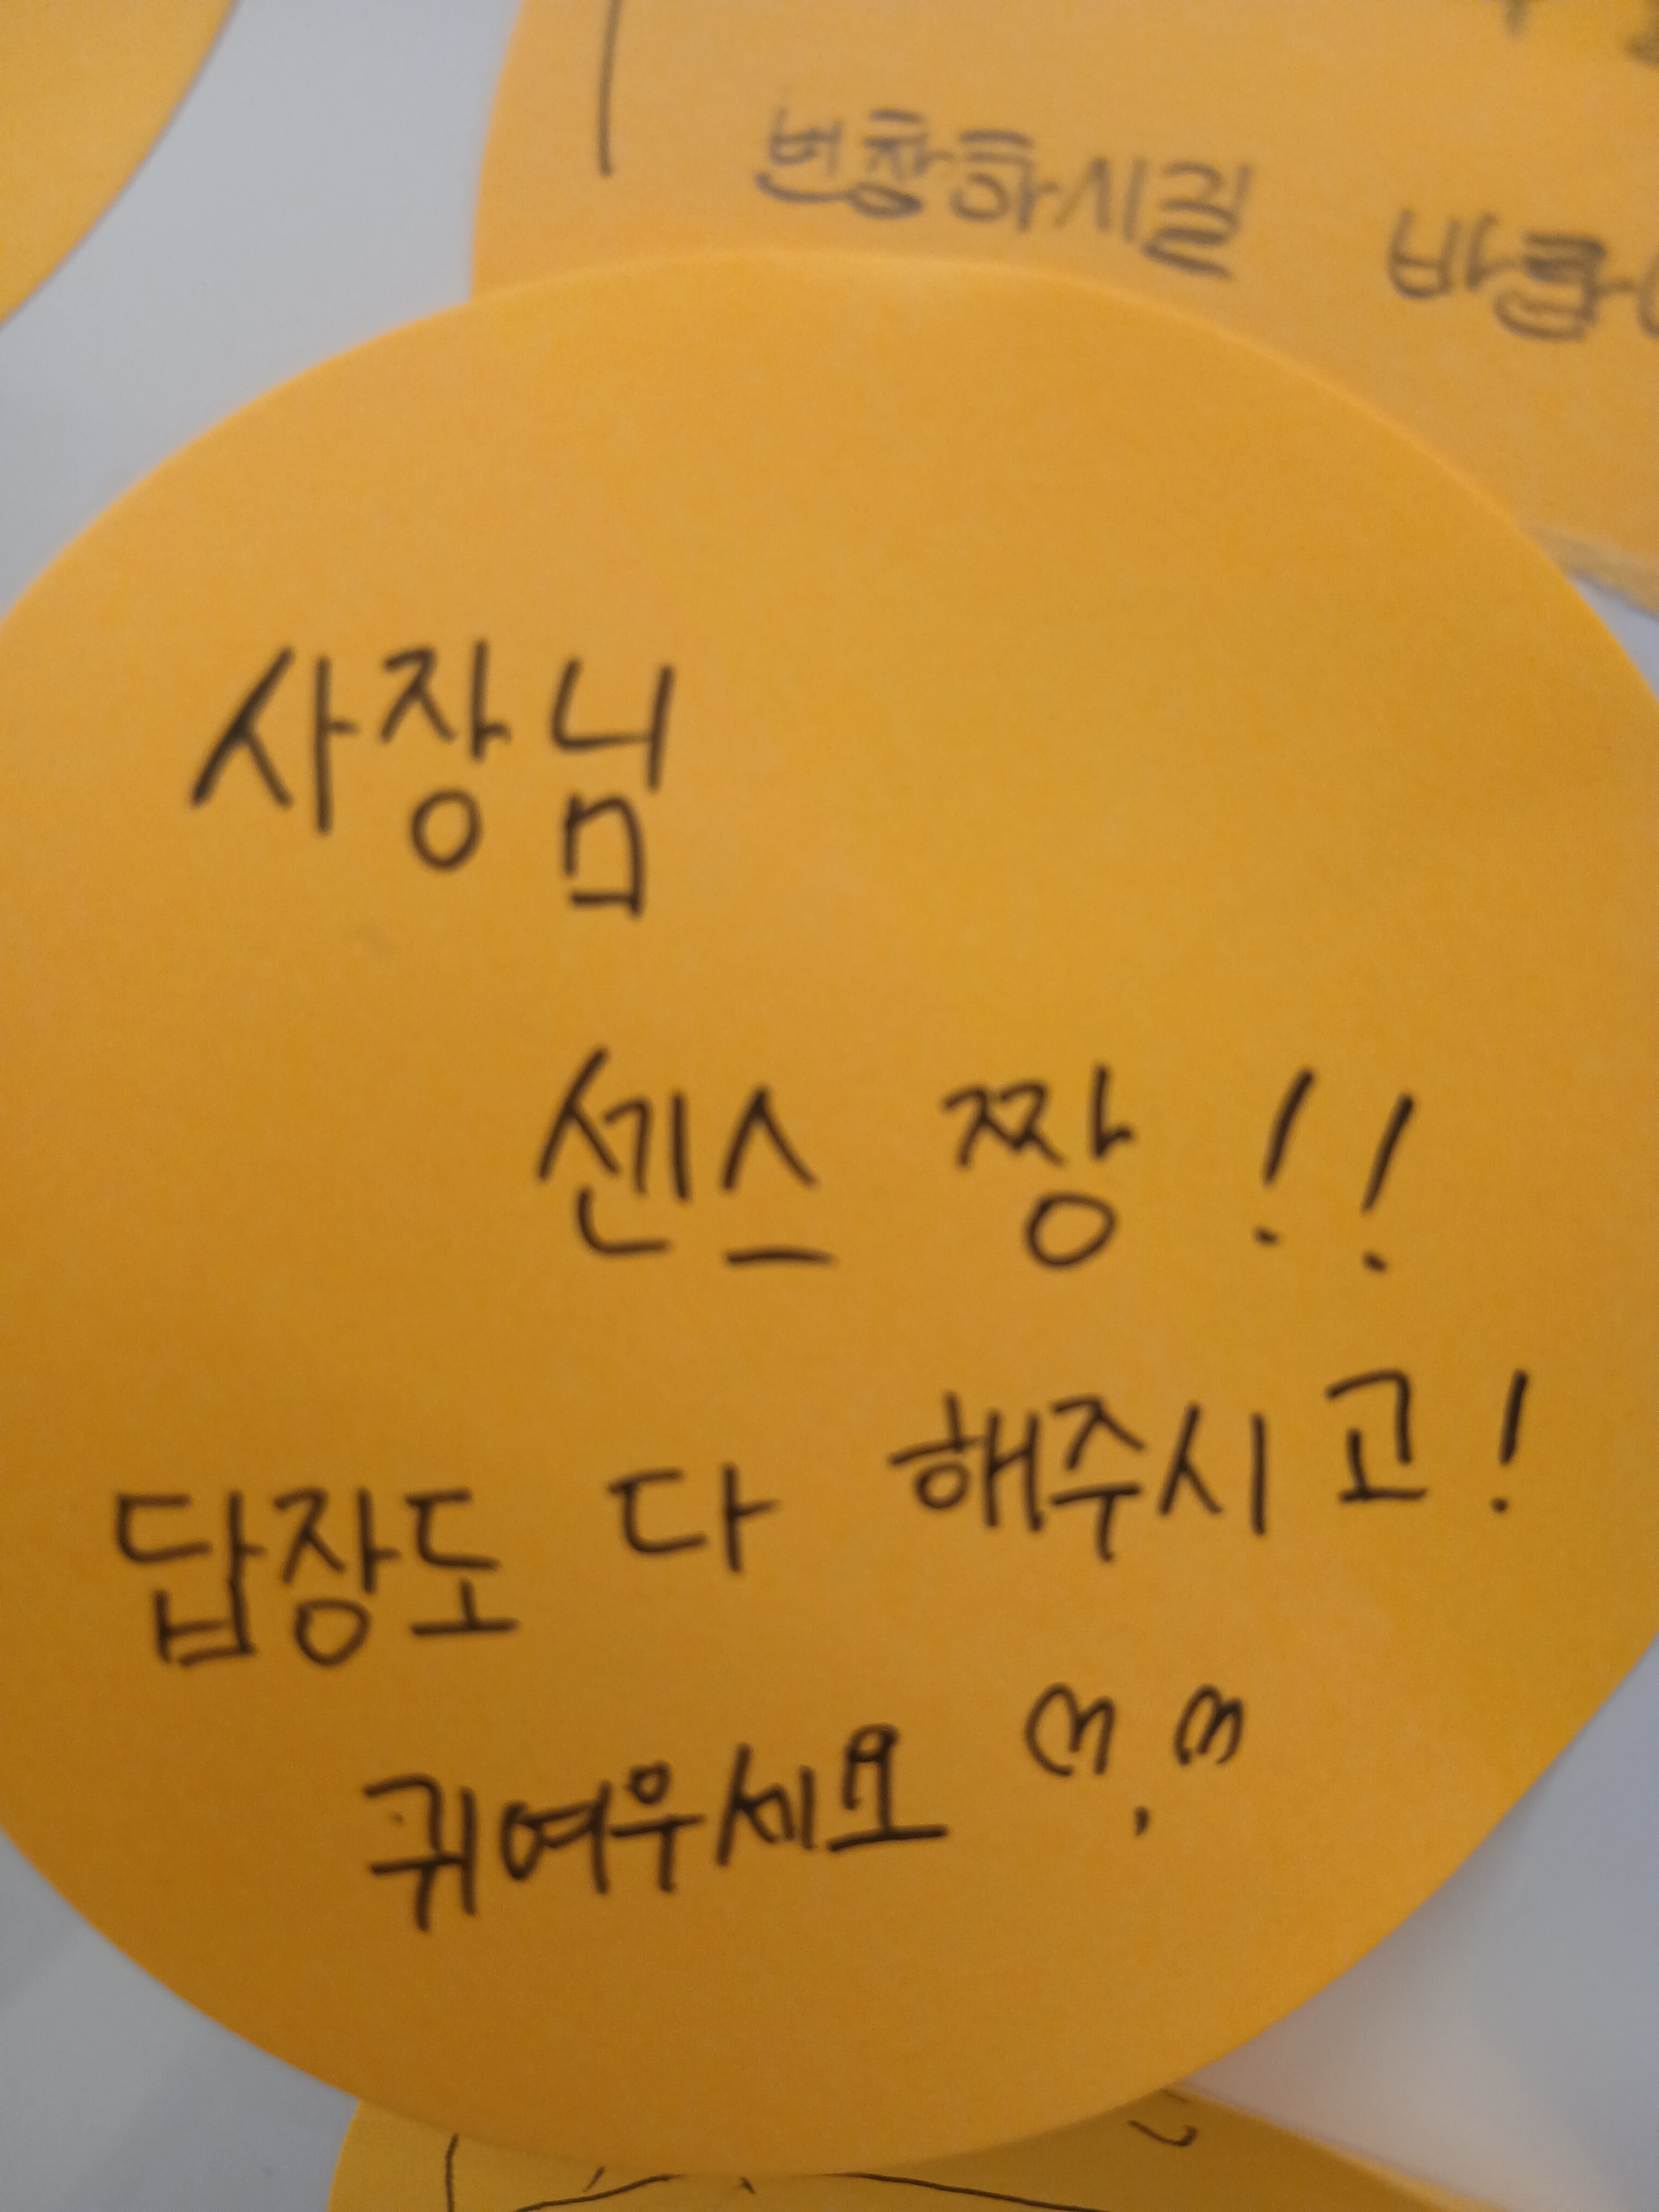 번창하시길
사장님
센스 짱!!
답장도 다 해주시고!
귀여우세요